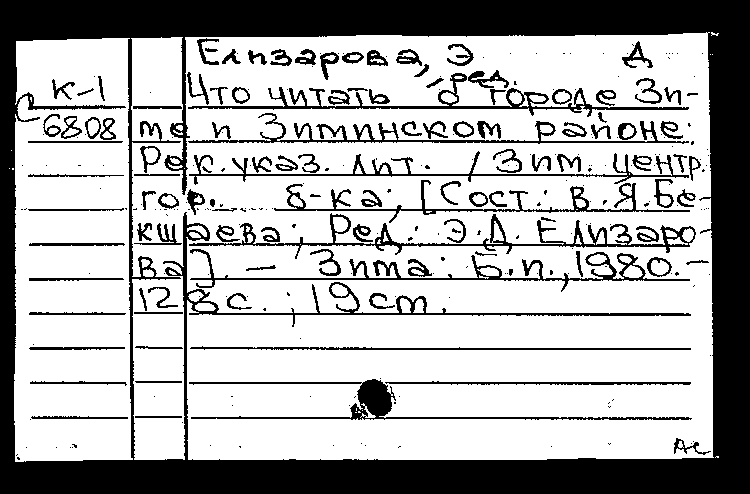 Елизарова, Э Д
ред.
К-1 Что читать о городе Зи-
С 6808 ме и Зиминском районе:
Рек. указ. лит. / Зим. центр.
гор. б-ка; [Сост.: В.Я.Бе-
кшаева; Ред.: Э.Д. Елизаро-
ва]. — Зима: Б.и., 1980.—
128с.; 19см.
Ас